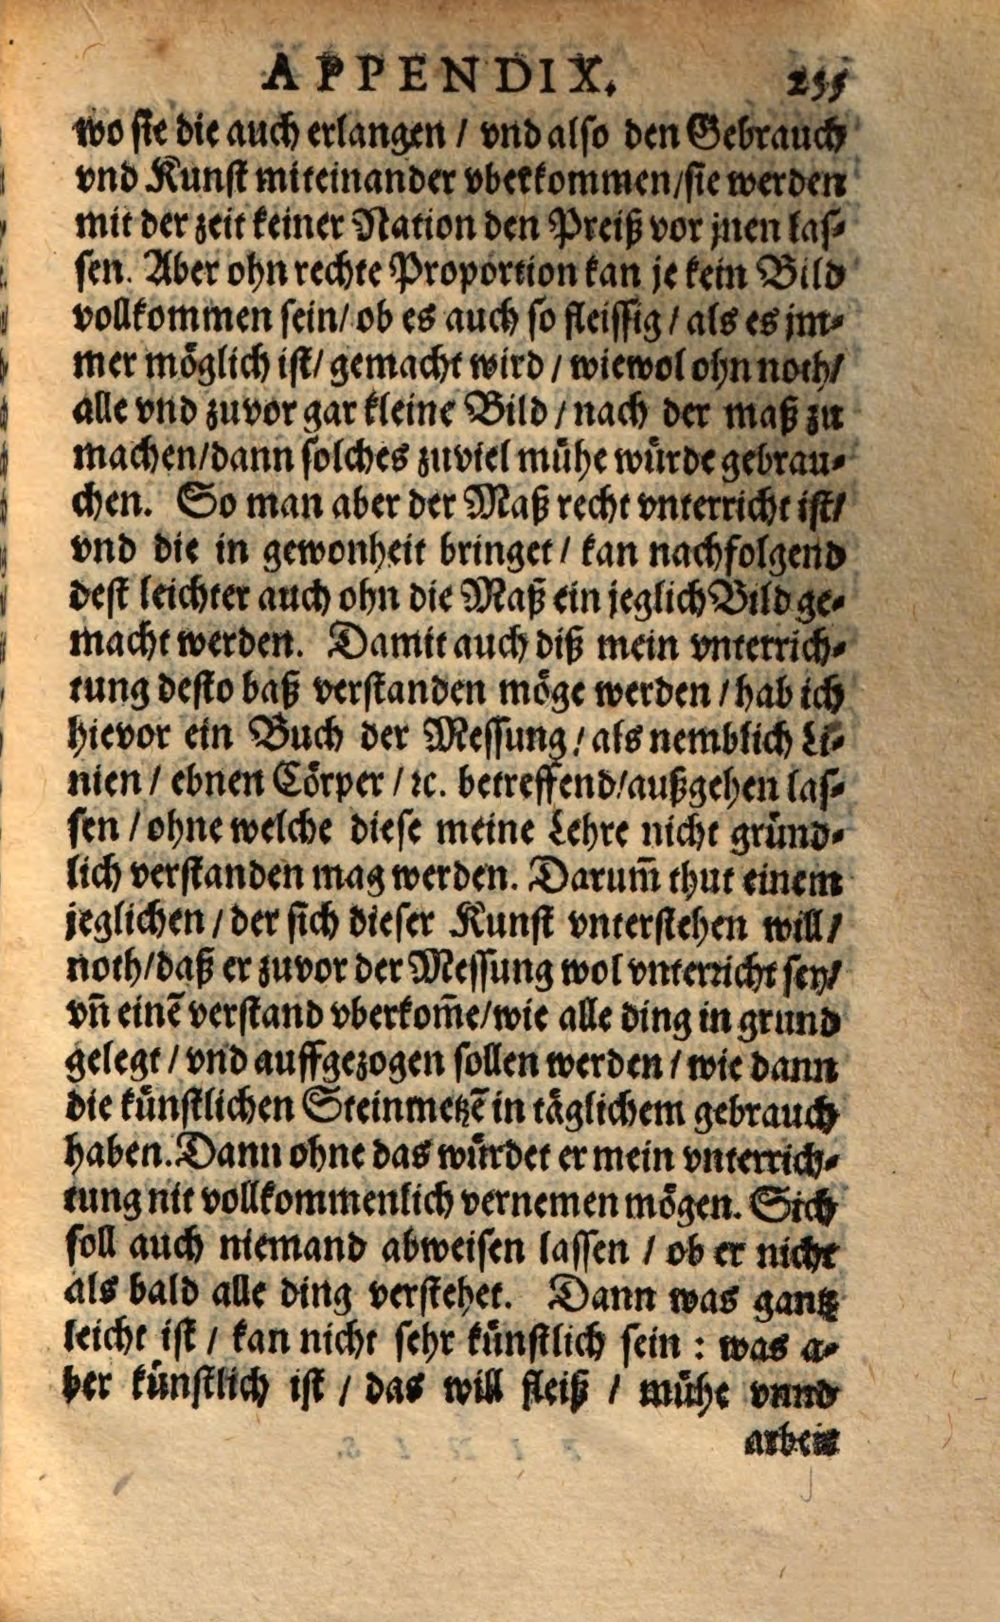 APPENDIX. 255
wo sie die auch erlangen / vnd also den Gebrauch
vnd Kunst miteinander vberkommen/sie werden
mit der zeit keiner Nation den Preiß vor jnen las-
sen. Aber ohn rechte Proportion kan je kein Bild
vollkommen sein/ ob es auch so fleissig / als es jm-
mer möglich ist/ gemacht wird / wiewol ohn noth/
alle vnd zuvor gar kleine Bild / nach der maß zu
machen/dann solches zuviel mühe würde gebrau-
chen. So man aber der Maß recht vnterricht ist/
vnd die in gewonheit bringet / kan nachfolgend
dest leichter auch ohn die Maß ein jeglich Bild ge-
macht werden. Damit auch diß mein vnterrich-
tung desto baß verstanden möge werden / hab ich
hievor ein Buch der Messung / als nemblich Li-
nien / ebnen Cörper / ꝛc. betreffend/außgehen las-
sen / ohne welche diese meine Lehre nicht gründ-
lich verstanden mag werden. Darum̃ thut einem
jeglichen / der sich dieser Kunst vnterstehen will/
noth/daß er zuvor der Messung wol vnterricht sey/
vñ einẽ verstand vberkom̃e/wie alle ding in grund
gelegt / vnd auffgezogen sollen werden / wie dann
die künstlichen Steinmetzẽ in täglichem gebrauch
haben. Dann ohne das würdet er mein vnterrich-
tung nit vollkommenlich vernemen mögen. Sich
soll auch niemand abweisen lassen / ob er nicht
als bald alle ding verstehet. Dann was gantz
leicht ist / kan nicht sehr künstlich sein : was a-
ber künstlich ist / das will fleiß / mühe vnnd
arbeit